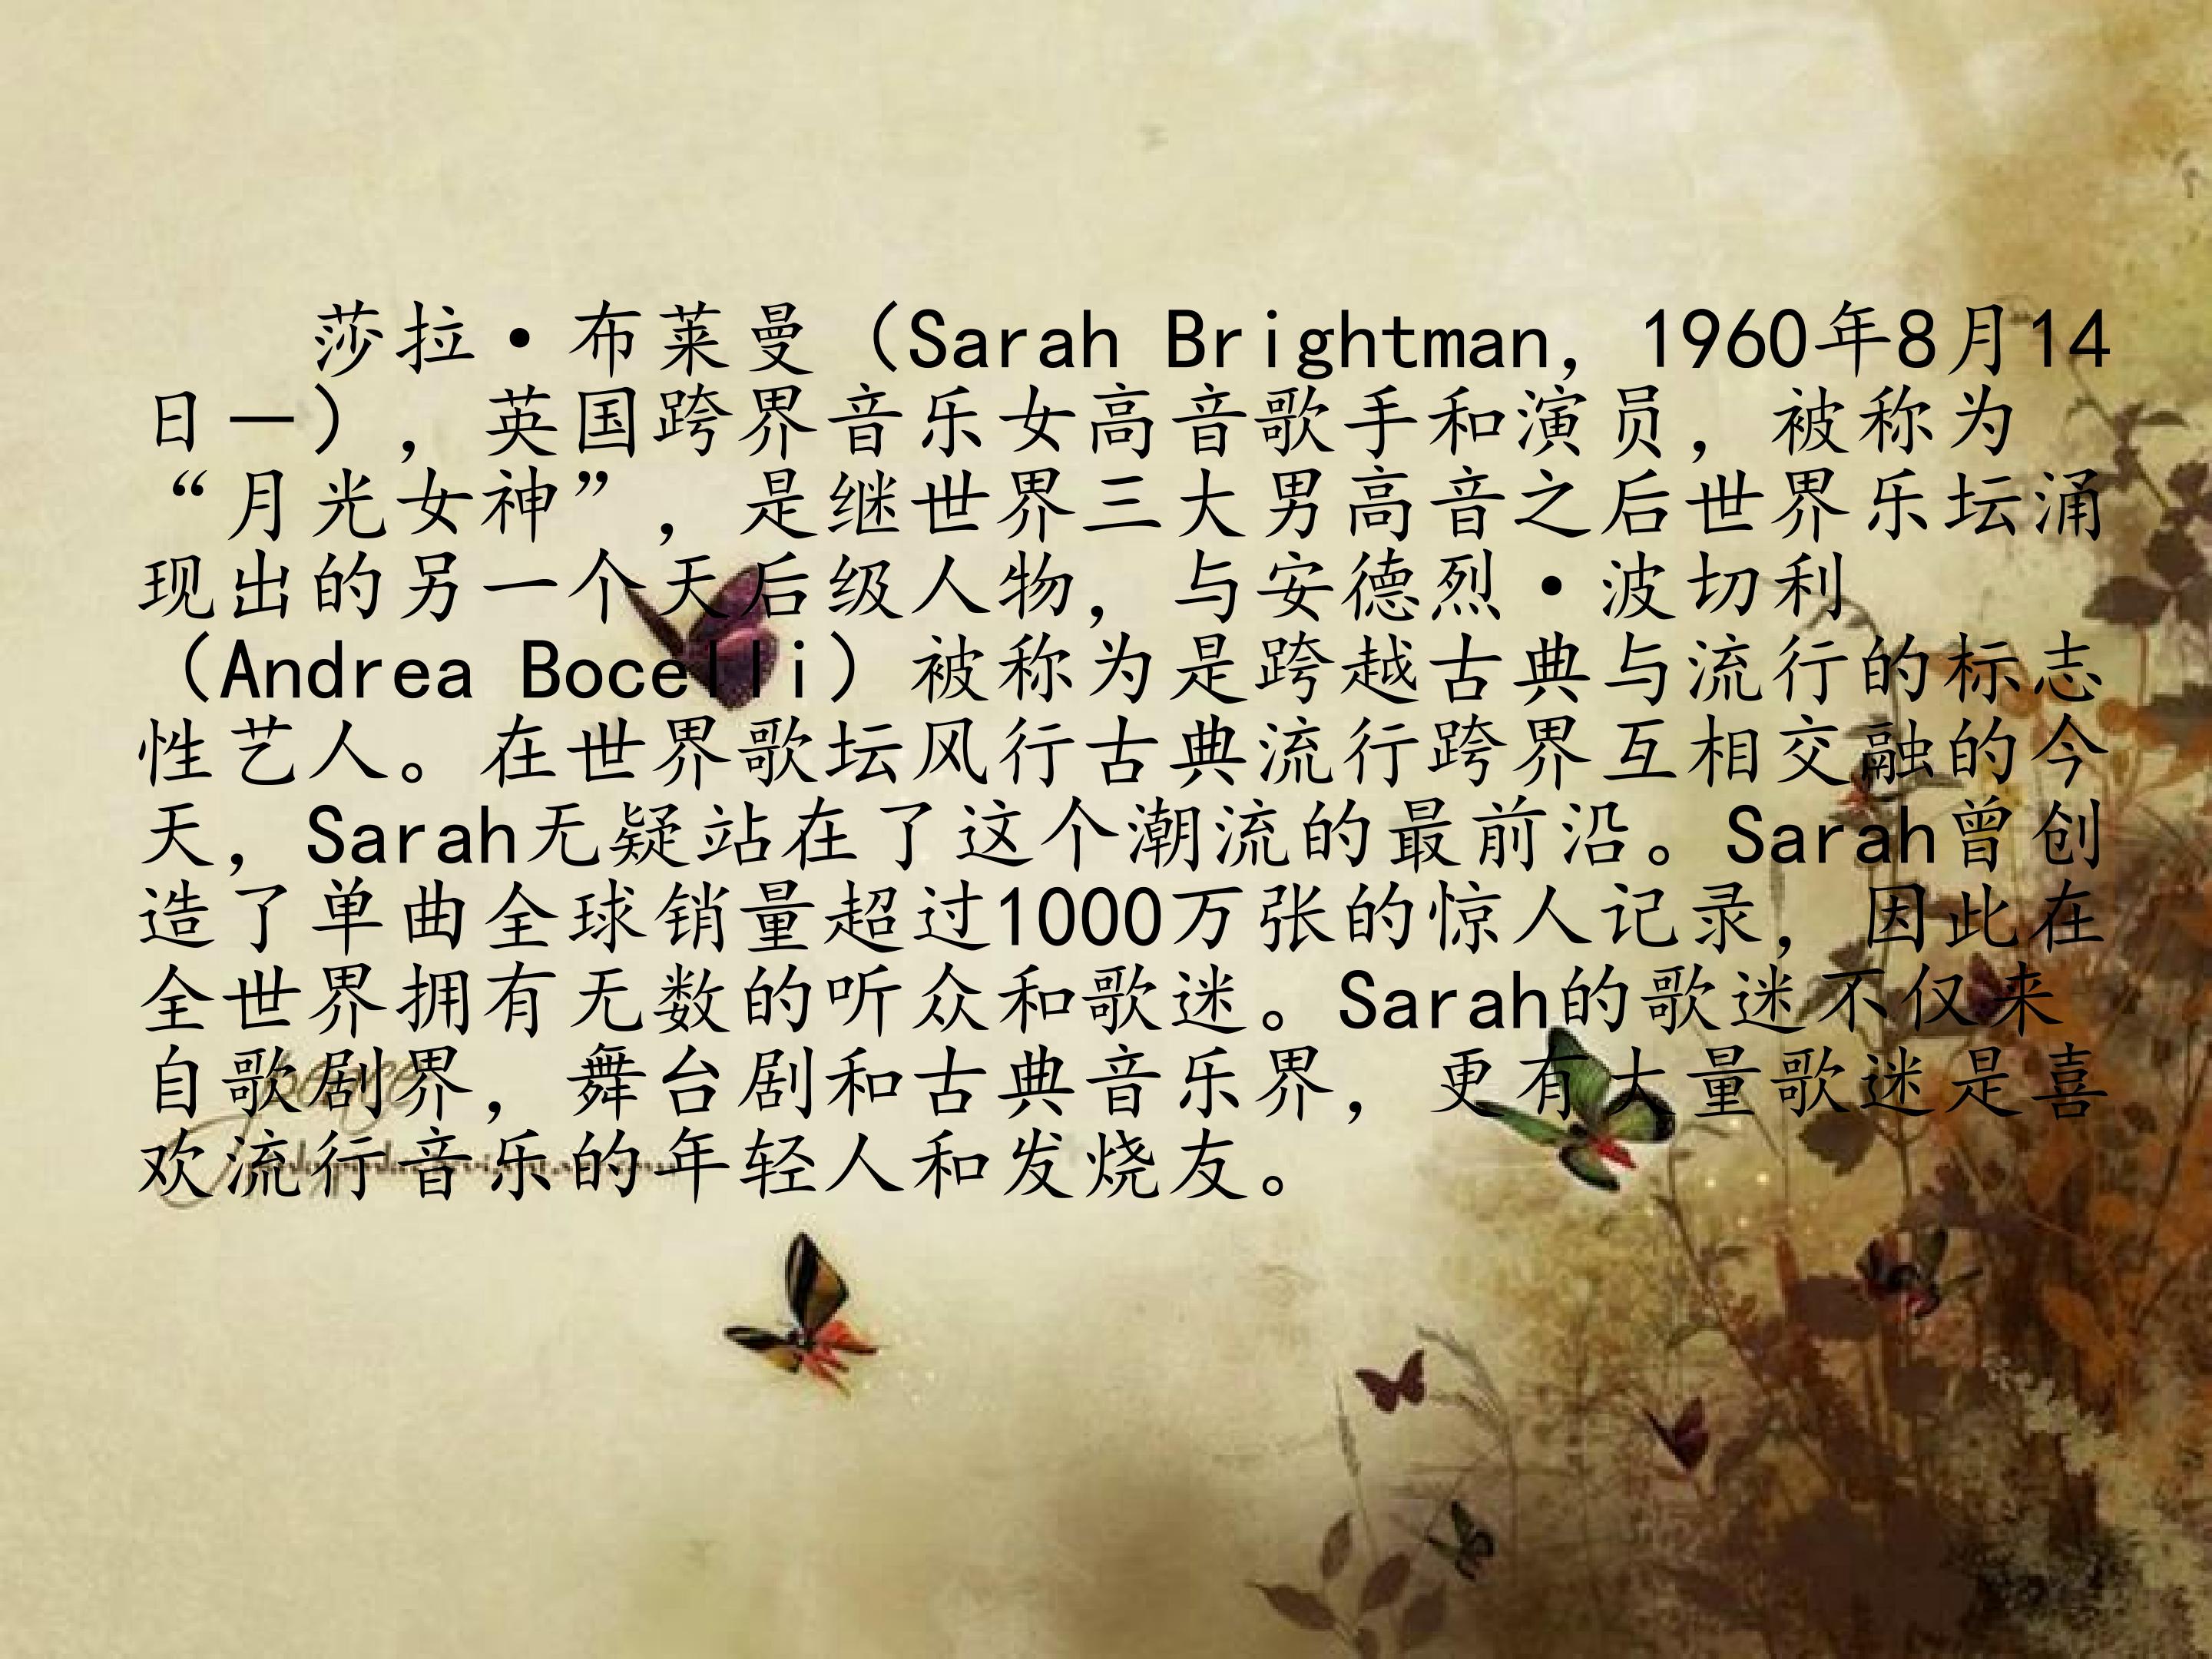 莎拉·布莱曼（Sarah Brightman，1960年8月14
日－），英国跨界音乐女高音歌手和演员，被称为
“月光女神”，是继世界三大男高音之后世界乐坛涌
现出的另一个天后级人物，与安德烈·波切利
（Andrea Bocelli）被称为是跨越古典与流行的标志
性艺人。在世界歌坛风行古典流行跨界互相交融的今
天，Sarah无疑站在了这个潮流的最前沿。Sarah曾创
造了单曲全球销量超过1000万张的惊人记录，因此在
全世界拥有无数的听众和歌迷。Sarah的歌迷不仅来
自歌剧界，舞台剧和古典音乐界，更有大量歌迷是喜
欢流行音乐的年轻人和发烧友。